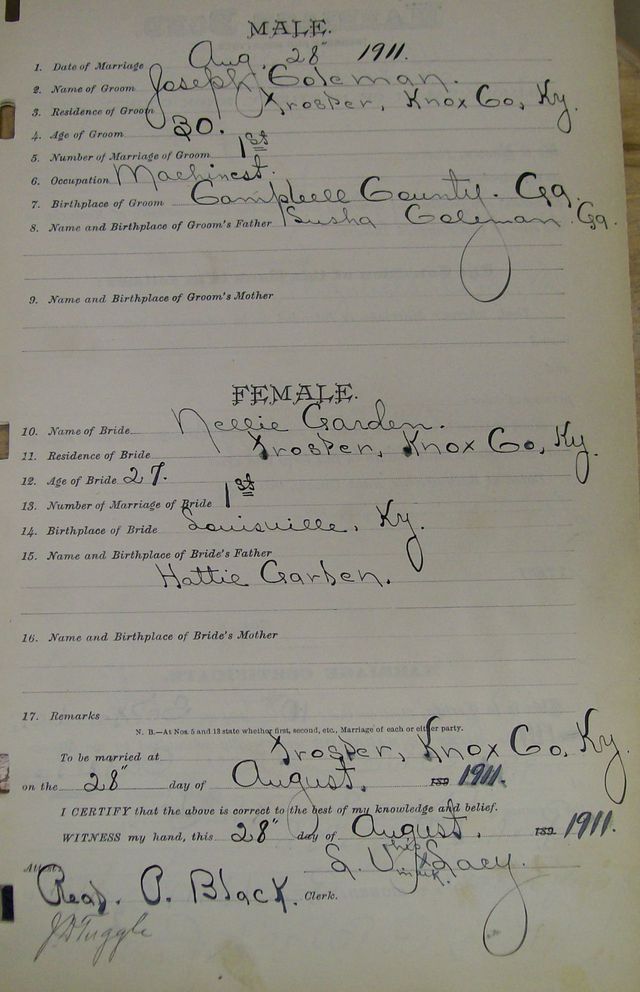 MALE.
1. Date of Marriage Aug. 28" 1911.
2. Name of Groom Joseph Coleman.
3. Residence of Groom Trosper, Knox Co, Ky.
4. Age of Groom 30.
5. Number of Marriage of Groom 1st
6. Occupation Machinest.
7. Birthplace of Groom Campbell County. Ga.
8. Name and Birthplace of Groom's Father Susha Coleman. Ga.
9. Name and Birthplace of Groom's Mother
FEMALE.
10. Name of Bride Nellie Garden.
11. Residence of Bride Trosper, Knox Co, Ky.
12. Age of Bride 27.
13. Number of Marriage of Bride 1st
14. Birthplace of Bride Louisville, Ky.
15. Name and Birthplace of Bride's Father
Hattie Garden.
16. Name and Birthplace of Bride's Mother
17. Remarks
N. B.—At Nos. 5 and 13 state whether first, second, etc., Marriage of each or either party.
To be married at Trosper, Knox Co, Ky.
on the 28" day of August. 189 1911.
I CERTIFY that the above is correct to the best of my knowledge and belief.
WITNESS my hand, this 28" day of August. 189 1911.
his
Lacy.
mark.
Attest:
P. Black. Clerk.
J D Tuggle